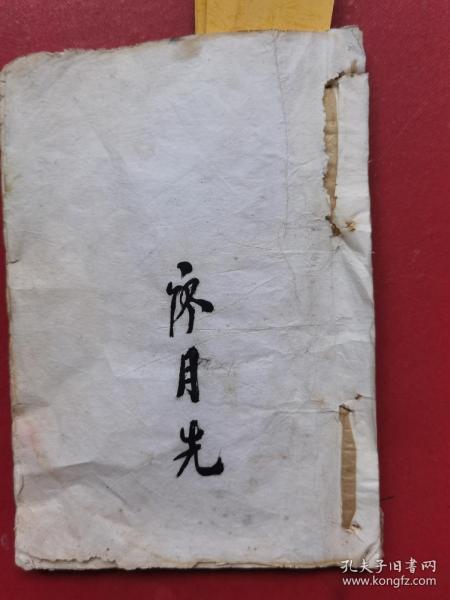 廖月先
孔夫子旧书网
www.kongfz.com